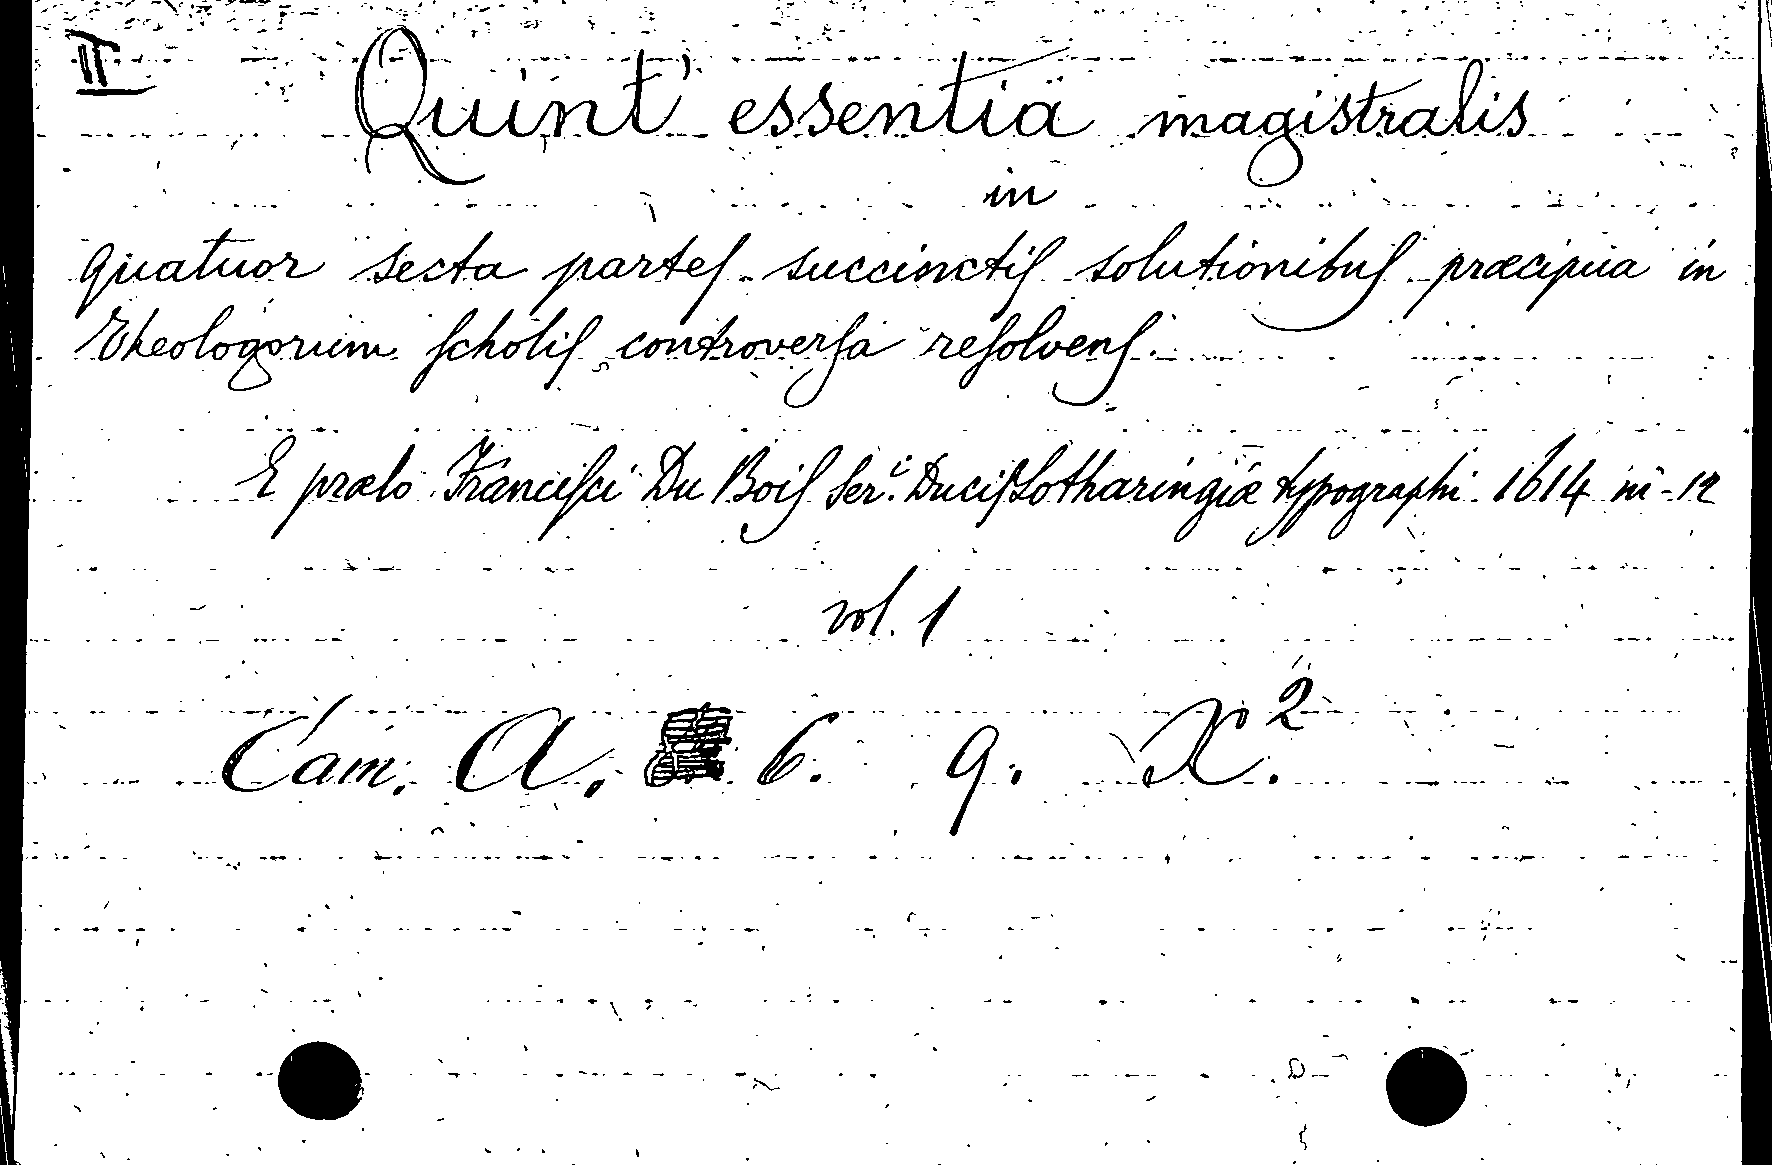 II
Quint'essentia magistralis
in
quatuor secta partes succinctis solutionibus præcipua in
Theologorum scholis controversa resolvens.
E prælo Francisci Du Bois Ser.i Ducis Lotharingiæ typographi 1614 in-12
vol. 1
Cam. A. 6. 9. X.2